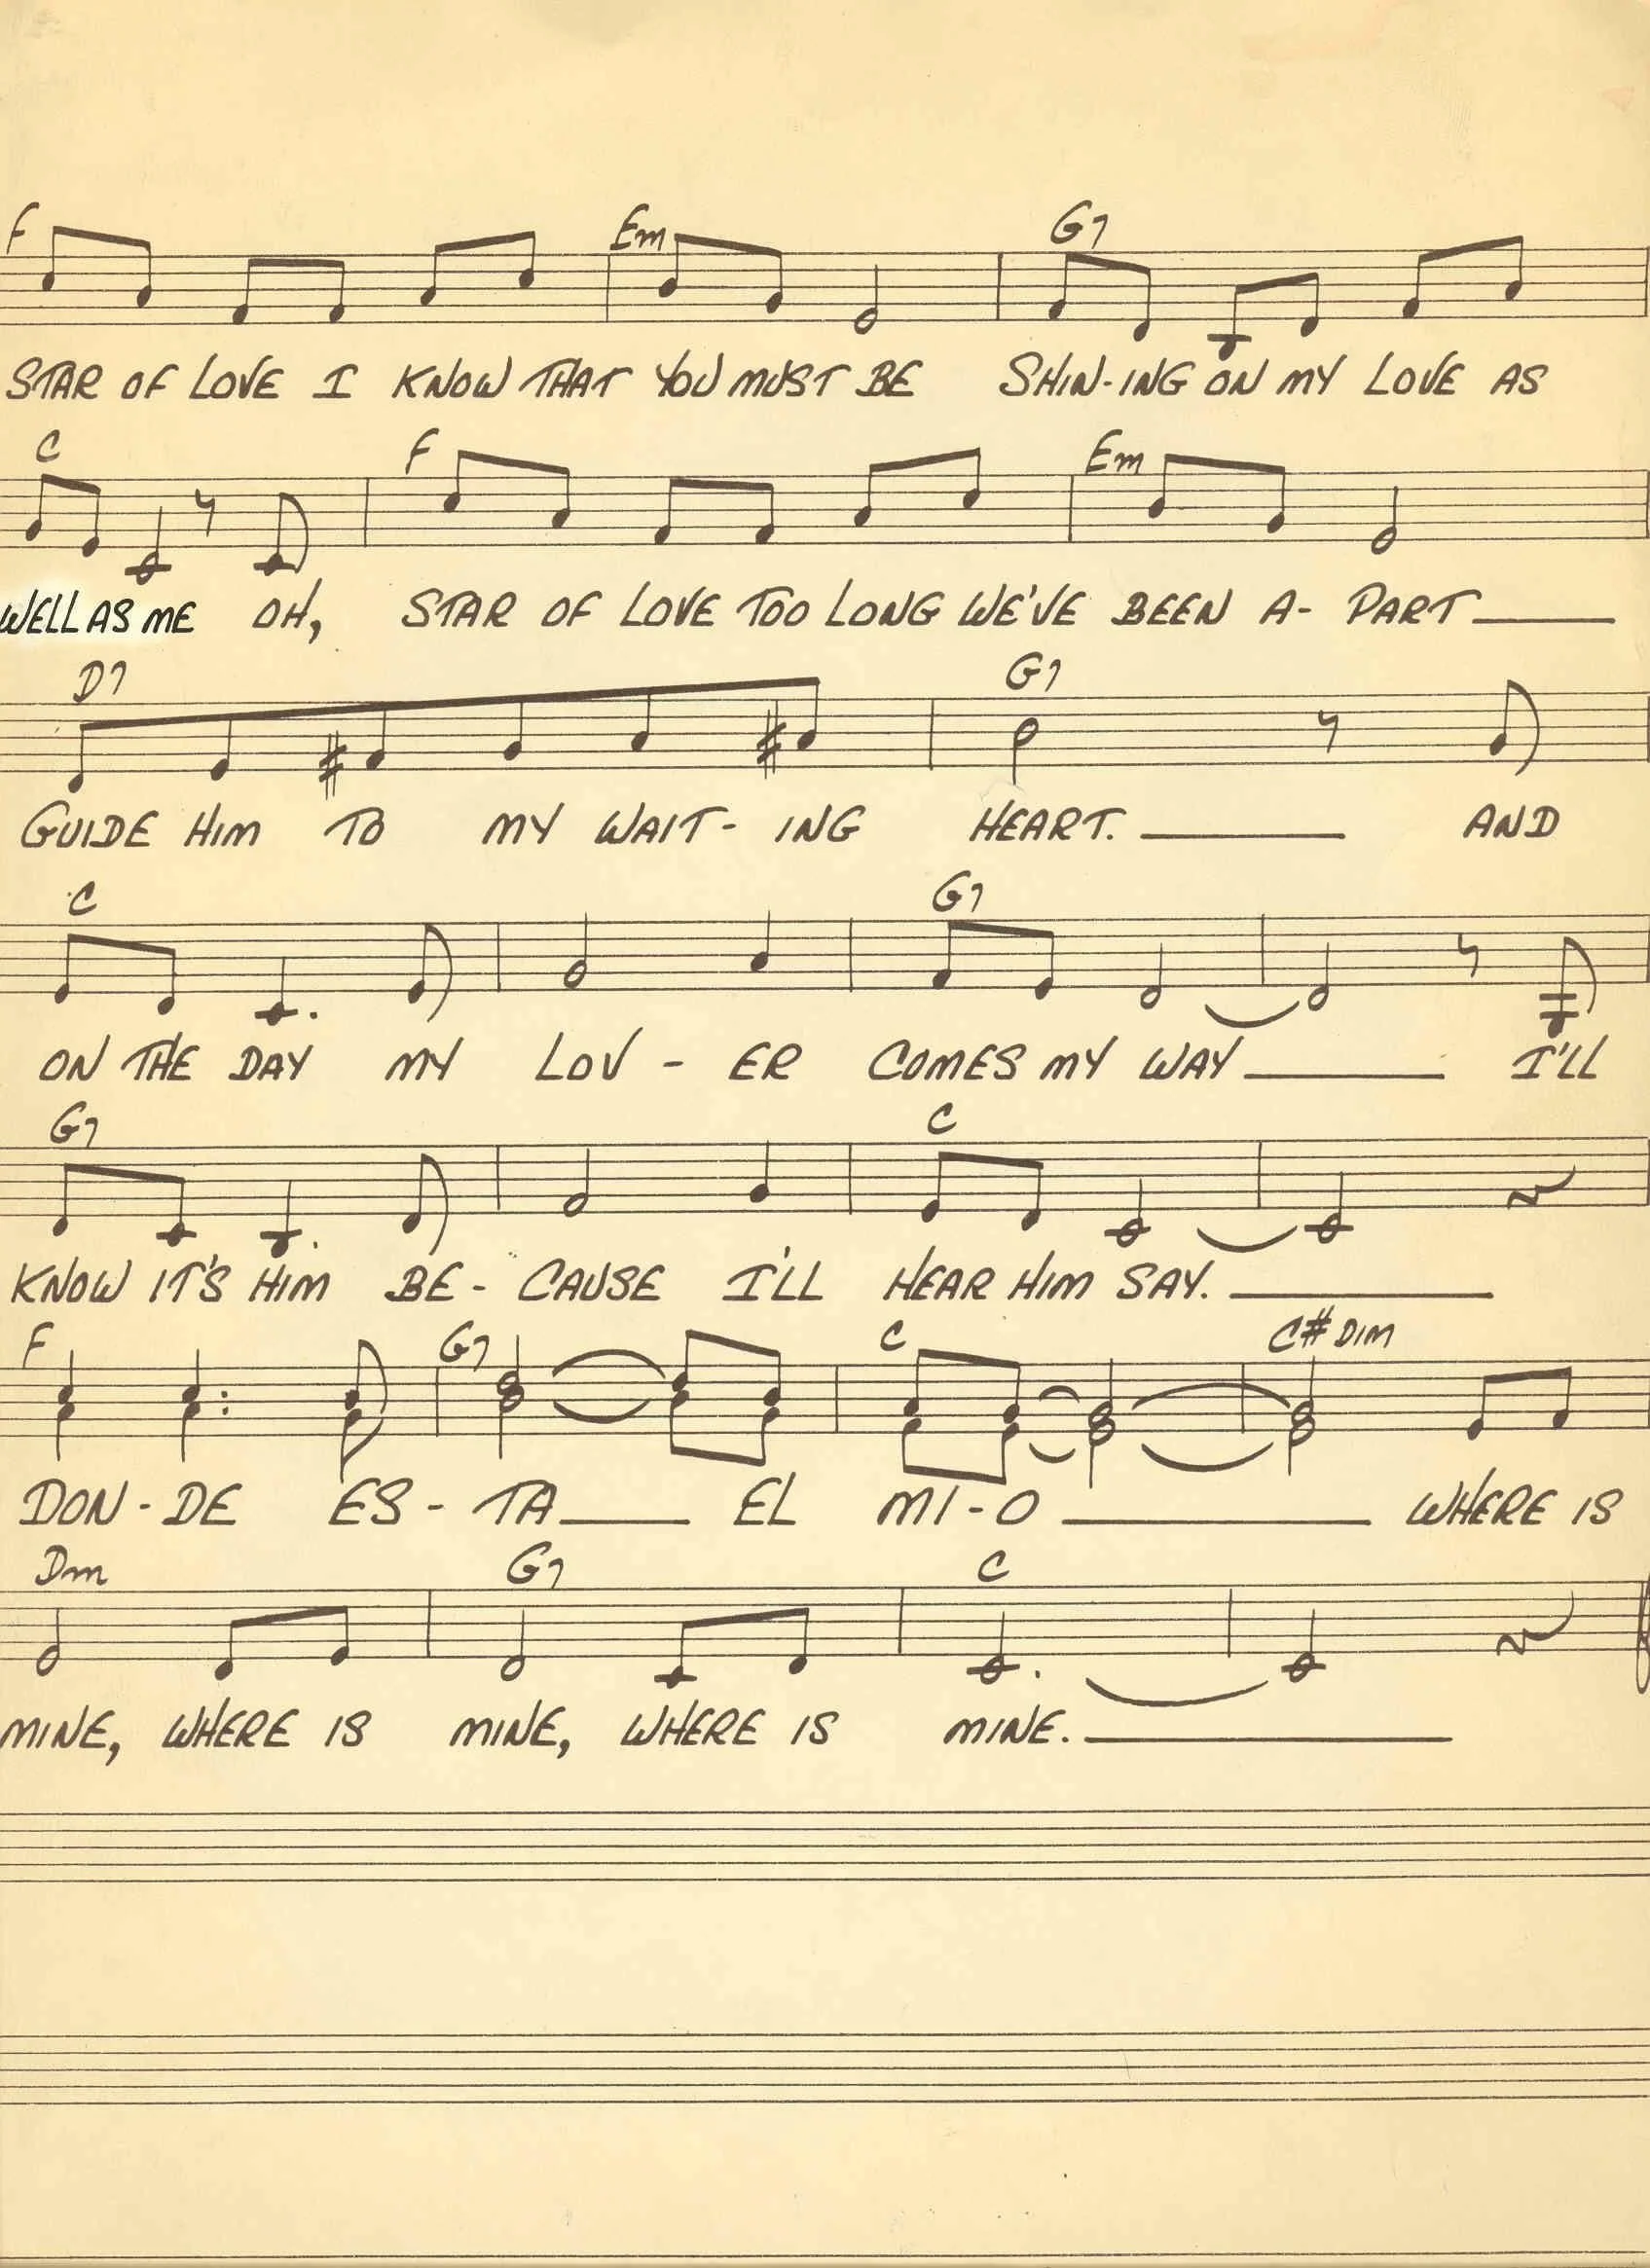 F Em G7
STAR OF LOVE I KNOW THAT YOU MUST BE SHIN-ING ON MY LOVE AS
C F Em
WELL AS ME OH, STAR OF LOVE TOO LONG WE'VE BEEN A- PART
D7 G7
GUIDE HIM TO MY WAIT- ING HEART. AND
C G7
ON THE DAY MY LOV - ER COMES MY WAY I'LL
G7 C
KNOW IT'S HIM BE- CAUSE I'LL HEAR HIM SAY.
F G7 C C# DIM
DON-DE ES- TA EL MI-O WHERE IS
Dm G7 C
MINE, WHERE IS MINE, WHERE IS MINE.